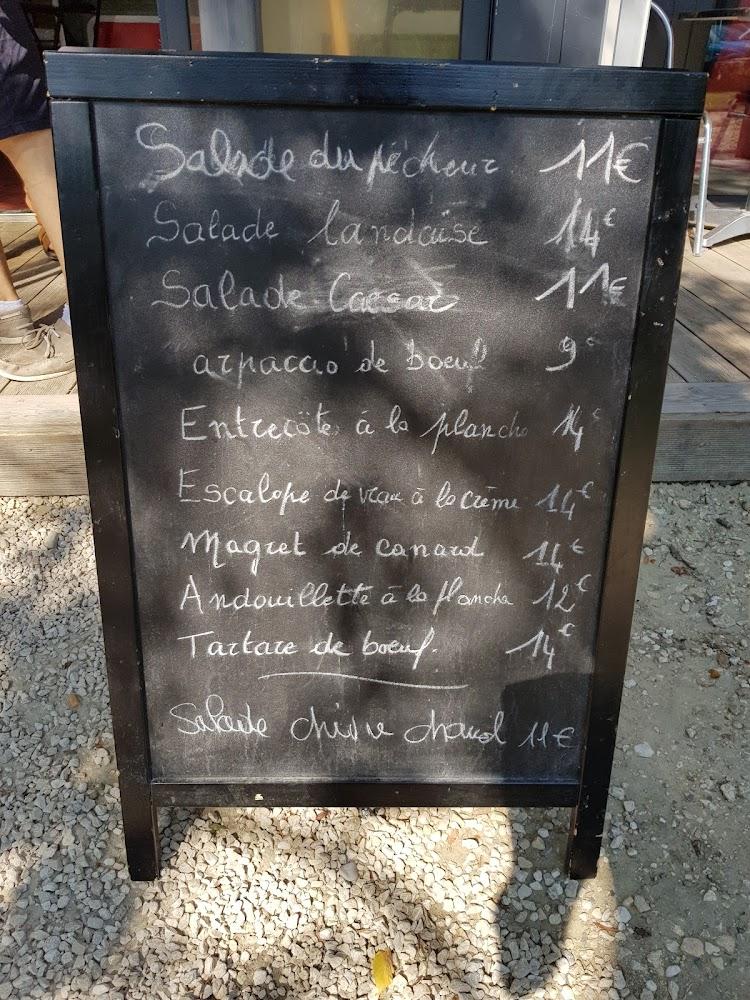 Salade du pêcheur 11€
Salade landaise 14€
Salade Caesar 11€
arpaccio de boeuf 9€
Entrecôte à la plancha 14€
Escalope de veau à la crème 14€
Magret de canard 14€
Andouillette à la plancha 12€
Tartare de boeuf. 14€
Salade chèvre chaud 11€